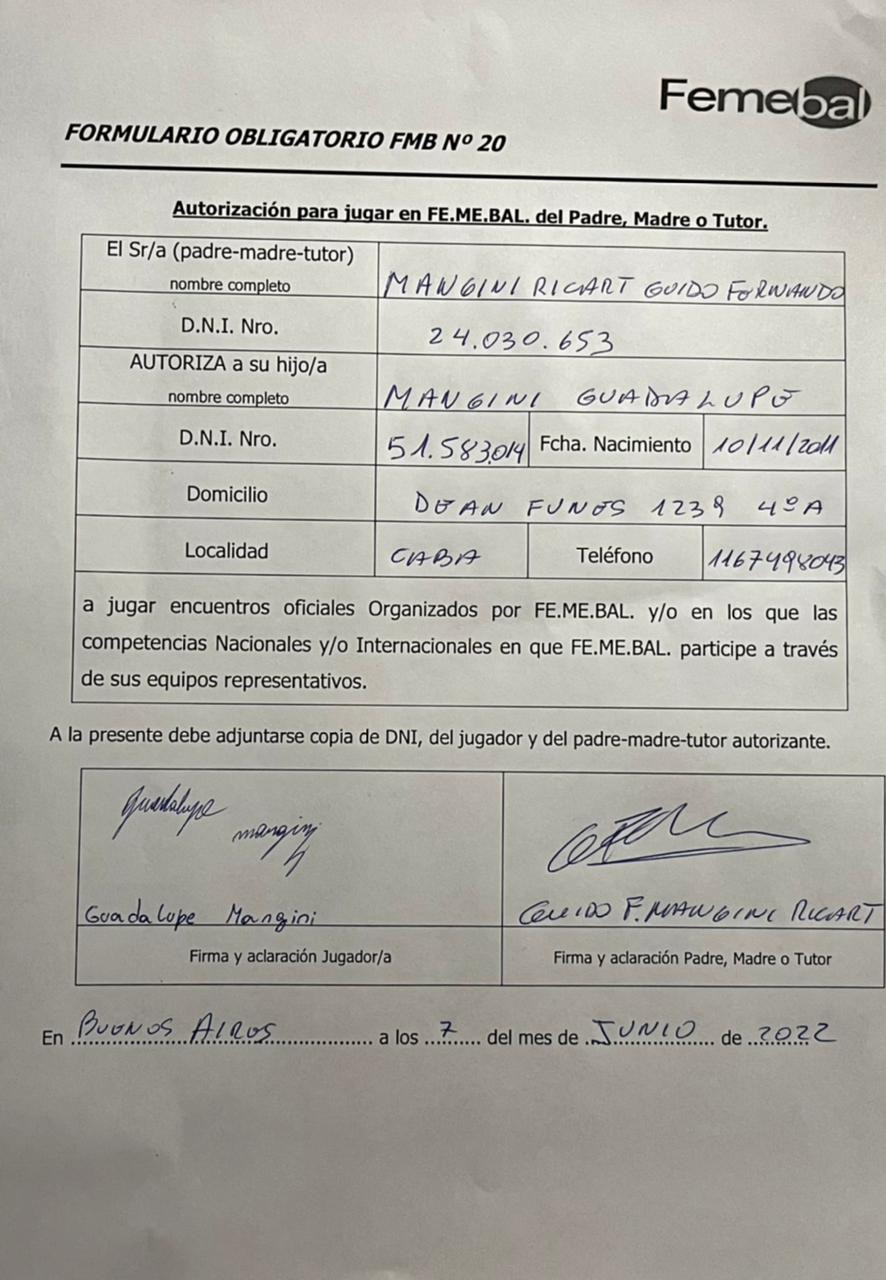 Femebal
FORMULARIO OBLIGATORIO FMB Nº 20
Autorización para jugar en FE.ME.BAL. del Padre, Madre o Tutor.
El Sr/a (padre-madre-tutor)
nombre completo
MANGINI RICART GUIDO FERNANDO
D.N.I. Nro.
24.030.653
AUTORIZA a su hijo/a
nombre completo
MANGINI GUADALUPE
D.N.I. Nro.
51.583.014
Fcha. Nacimiento
10/11/2011
Domicilio
DEAN FUNES 1239 4º A
Localidad
CABA
Teléfono
1167498043
a jugar encuentros oficiales Organizados por FE.ME.BAL. y/o en los que las
competencias Nacionales y/o Internacionales en que FE.ME.BAL. participe a través
de sus equipos representativos.
A la presente debe adjuntarse copia de DNI, del jugador y del padre-madre-tutor autorizante.
guadalupe
mangini
Guadalupe Mangini
Firma y aclaración Jugador/a
GUIDO F. MANGINI RICART
Firma y aclaración Padre, Madre o Tutor
En BUENOS AIRES a los 7 del mes de JUNIO de 2022